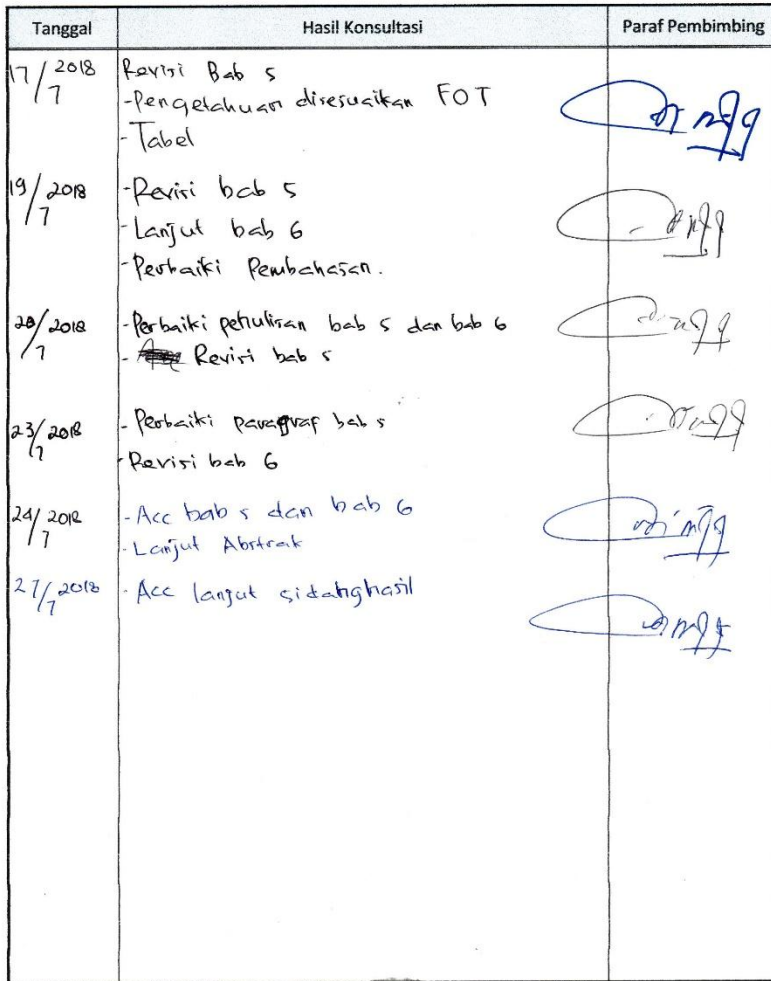 Tanggal Hasil Konsultasi Paraf Pembimbing
17/7 2018 Revisi Bab 5
- Pengetahuan disesuaikan FOT
- Tabel
19/7 2018 - Revisi bab 5
- Lanjut bab 6
- Perbaiki Pembahasan.
20/7 2018 - Perbaiki penulisan bab 5 dan bab 6
- Revisi bab 5
23/7 2018 - Perbaiki paragraf bab 5
- Revisi bab 6
24/7 2018 - Acc bab 5 dan bab 6
- Lanjut Abstrak
27/7 2018 - Acc lanjut sidang hasil